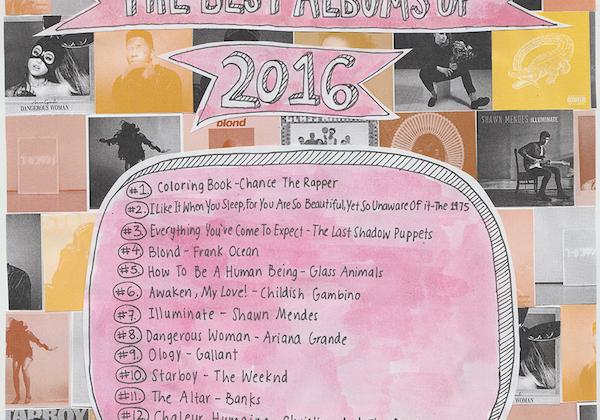 THE BEST ALBUMS OF
2016
DANGEROUS WOMAN
blond
SHAWN MENDES ILLUMINATE
#1. Coloring Book - Chance The Rapper
#2. I Like It When You Sleep, For You Are So Beautiful, Yet So Unaware Of it - The 1975
#3. Everything You've Come To Expect - The Last Shadow Puppets
#4. Blond - Frank Ocean
#5. How To Be A Human Being - Glass Animals
#6. Awaken, My Love! - Childish Gambino
#7. Illuminate - Shawn Mendes
#8. Dangerous Woman - Ariana Grande
#9. Ology - Gallant
#10. Starboy - The Weeknd
#11. The Altar - Banks
#12. Chaleur Humaine